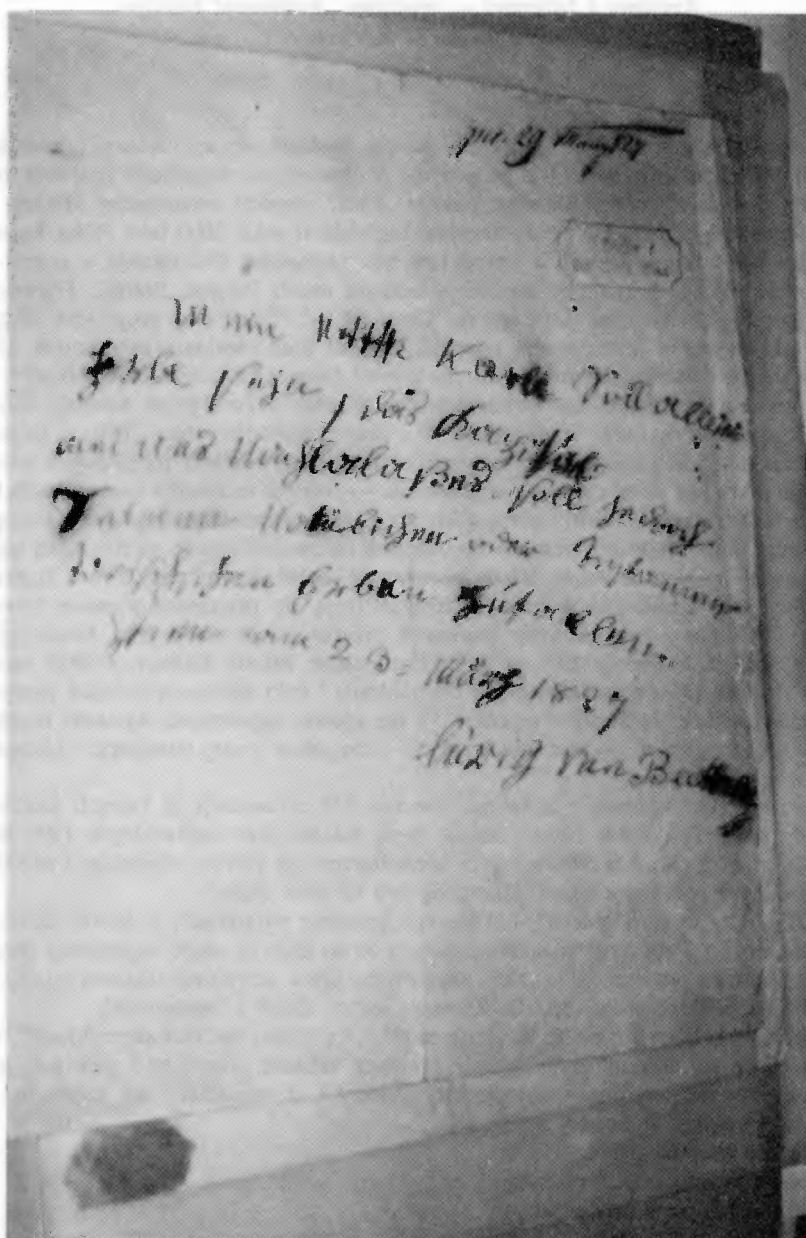 pr: 29 März 827
Mein Neffe Karl Soll allein
Erbe seyn, das Kapital
meines Nachlalaßes soll jedoch
Seinen Natürlichen oder testamen-
tarischen Erben zufallen.
Wien am 23. März 1827
luwig van Beethoven